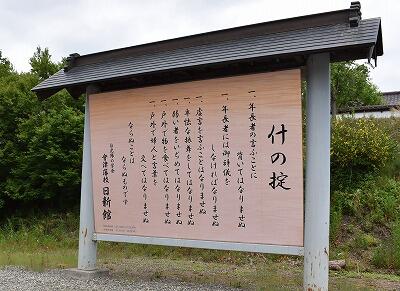 什の掟
一、年長者の言ふことに
背いてはなりませぬ
一、年長者には御辞儀を
しなければなりませぬ
一、虚言を言ふことはなりませぬ
一、卑怯な振舞をしてはなりませぬ
一、弱い者をいぢめてはなりませぬ
一、戸外で物を食べてはなりませぬ
一、戸外で婦人と言葉を
交へてはなりませぬ
ならぬことは
ならぬものです
會津藩校 日新館